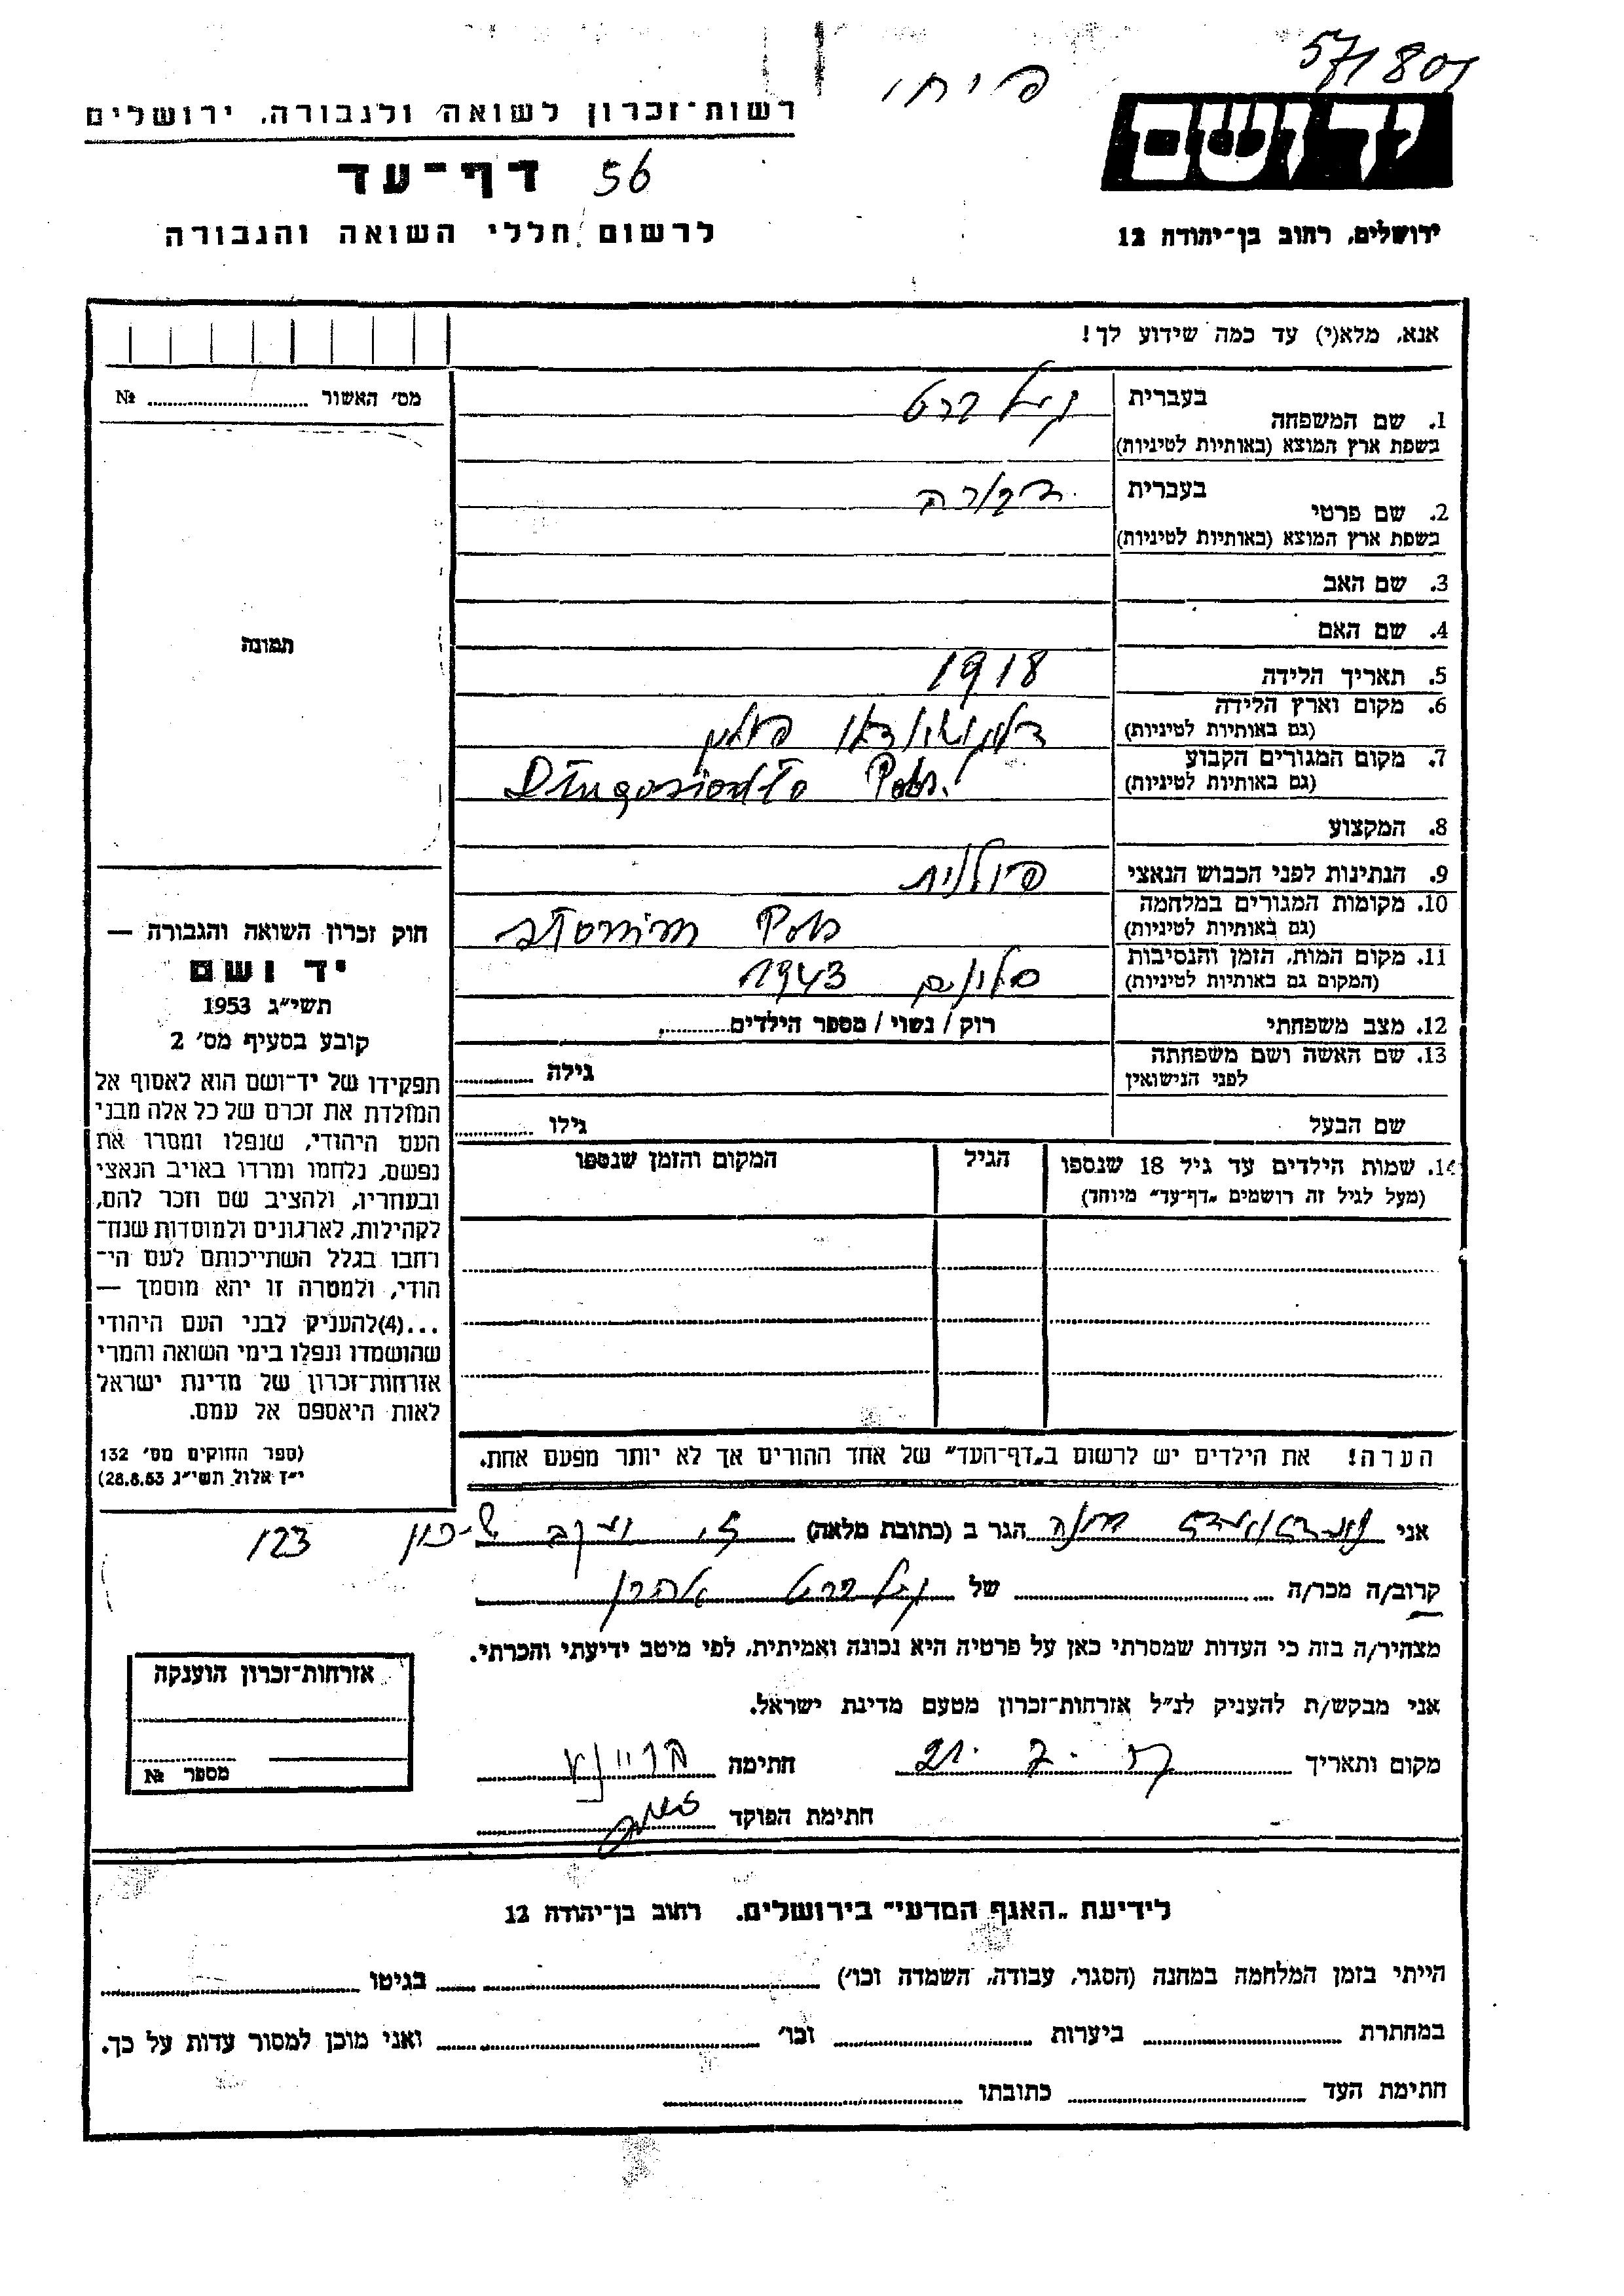 571801
פיחו
יד ושם
רשות־זכרון לשואה ולגבורה, ירושלים
דף־עד 56
לרשום חללי השואה והגבורה
ירושלים, רחוב בן־יהודה 12
אנא, מלא(י) עד כמה שידוע לך!
מס׳ האשור № 
תמונה
1. שם המשפחה
בעברית
בשפת ארץ המוצא (באותיות לטיניות)
2. שם פרטי
בעברית דבורה
בשפת ארץ המוצא (באותיות לטיניות)
3. שם האב
4. שם האם
5. תאריך הלידה 1918
6. מקום וארץ הלידה
(גם באותיות לטיניות) פולין
7. מקום המגורים הקבוע
(גם באותיות לטיניות) Pol.
8. המקצוע
9. הנתינות לפני הכבוש הנאצי פולנית
10. מקומות המגורים במלחמה
(גם באותיות לטיניות) Słonim Pol
11. מקום המות, הזמן והנסיבות
(המקום גם באותיות לטיניות) סלונים 1943
12. מצב משפחתי רוק / נשוי / מספר הילדים
13. שם האשה ושם משפחתה
לפני הנישואין גילה
שם הבעל גילו
14. שמות הילדים עד גיל 18 שנספו הגיל המקום והזמן שנספו
(מעל לגיל זה רושמים „דף־עד״ מיוחד)
הערה! את הילדים יש לרשום ב„דף־העד״ של אחד ההורים אך לא יותר מפעם אחת.
חוק זכרון השואה והגבורה —
יד ושם
תשי״ג 1953
קובע בסעיף מס׳ 2
תפקידו של יד־ושם הוא לאסוף אל
המולדת את זכרם של כל אלה מבני
העם היהודי, שנפלו ומסרו את
נפשם, נלחמו ומרדו באויב הנאצי
ובעוזריו, ולהציב שם וזכר להם,
לקהילות, לארגונים ולמוסדות שנח־
רבו בגלל השתייכותם לעם הי־
הודי, ולמטרה זו יהא מוסמך —
...(4)להעניק לבני העם היהודי
שהושמדו ונפלו בימי השואה והמרי
אזרחות־זכרון של מדינת ישראל
לאות היאספם אל עמם.
(ספר החוקים מס׳ 132
י״ז אלול תשי״ג 28.8.53)
אני הגר ב (כתובת מלאה) שיכון 123
קרוב/ה מכר/ה של אהרן
מצהיר/ה בזה כי העדות שמסרתי כאן על פרטיה היא נכונה ואמיתית, לפי מיטב ידיעתי והכרתי.
אני מבקש/ת להעניק לנ״ל אזרחות־זכרון מטעם מדינת ישראל.
מקום ותאריך 21. 7. 57 חתימה
חתימת הפוקד
אזרחות־זכרון הוענקה
מספר №
לידיעת „האגף המדעי״ בירושלים, רחוב בן־יהודה 12
הייתי בזמן המלחמה במחנה (הסגר, עבודה, השמדה וכו׳) בגיטו
במחתרת ביערות וכו׳ ואני מוכן למסור עדות על כך.
חתימת העד כתובתו